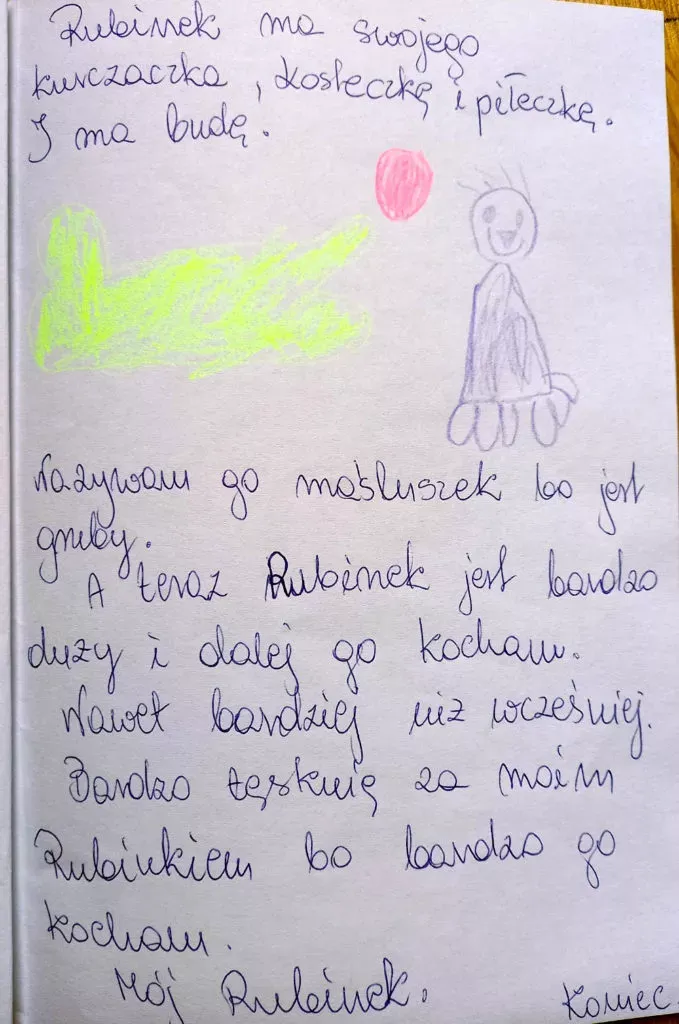 Rubinek ma swojego
kurczaczka, kosteczkę i piłeczkę.
I ma budę.
Nazywam go maśluszek bo jest
gruby.
A teraz Rubinek jest bardzo
duży i dalej go kocham.
Nawet bardziej niż wcześniej.
Bardzo tęsknię za moim
Rubinkiem bo bardzo go
kocham.
Mój Rubinek.
Koniec.